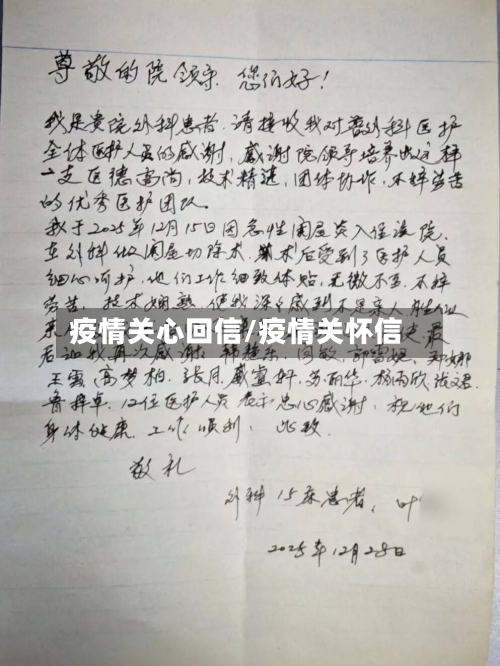 尊敬的院领导 您们好！
我是贵院外科患者,请接收我对贵外科医护
全体医护人员的感谢,感谢院领导培养出这样
一支医德高尚,技术精湛,团体协作,不辞劳苦
的优秀医护团队。
我于2025年12月15日因急性阑尾炎入住该院,
在外科做阑尾切除术,术后受到了医护人员
细心呵护,他们工作细致体贴,无微不至,不辞
劳苦,技术娴熟,使我深深感到不是亲人胜似
疫情关心回信/疫情关怀信
最
后让我再次感谢:
王雪 高梦柏 张月 苏丽华
12位医护人员表示忠心感谢,祝他们
身体健康,工作顺利! 此致
敬礼
外科15床患者, 叶
2025年12月28日